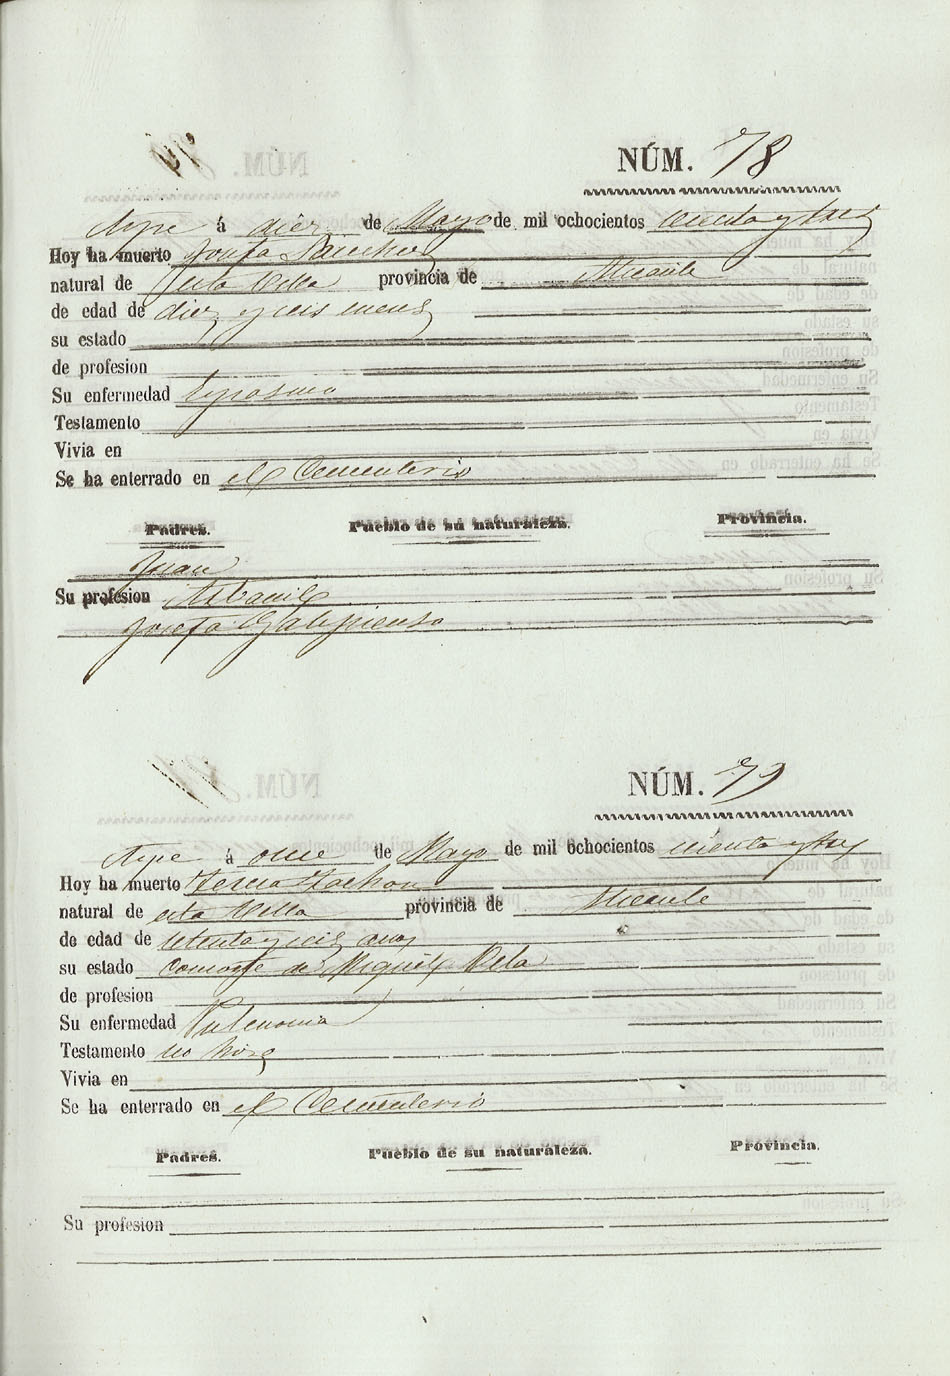 NÚM. 78
Aspe á diez de Mayo de mil ochocientos sesenta y tres
Hoy ha muerto Josefa Sanchez
natural de esta Villa provincia de Alicante
de edad de diez y seis meses
su estado
de profesion
Su enfermedad Espasmo
Testamento
Vivia en
Se ha enterrado en el Cementerio
Padres. Pueblo de su naturaleza. Provincia.
Juan
Su profesion Albañil
Josefa Galipienso
NÚM. 79
Aspe á once de Mayo de mil ochocientos sesenta y tres
Hoy ha muerto Teresa
natural de esta Villa provincia de Alicante
de edad de setenta y seis años
su estado Consorte de Miguel
de profesion
Su enfermedad Pulmonia
Testamento no hizo
Vivia en
Se ha enterrado en el Cementerio
Padres. Pueblo de su naturaleza. Provincia.
Su profesion